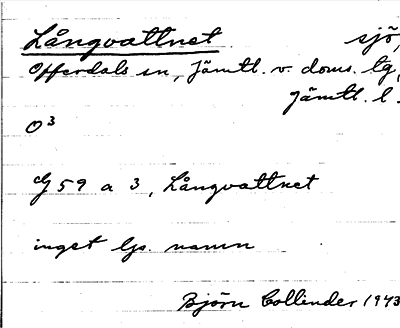 Långvattnet sjö,
Offerdals sn, Jämtl. v. doms. tg,
Jämtl. l.
O³
G 59 a 3, Långvattnet
inget lp. namn
Björn Collinder 1943